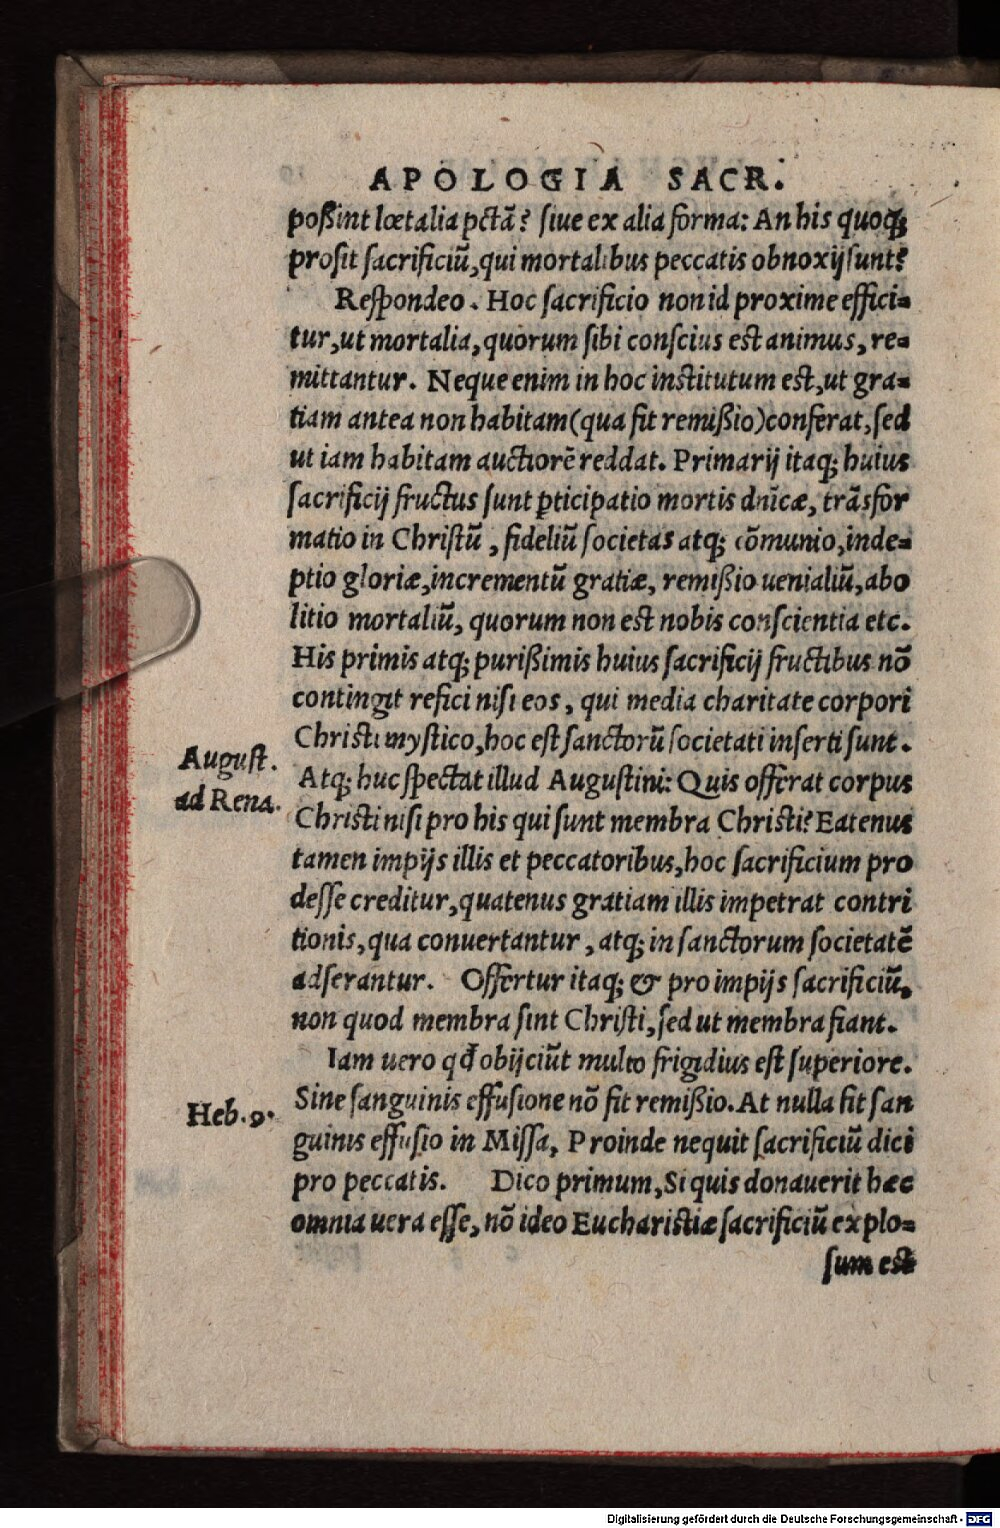 APOLOGIA SACR.
poßint lœtalia pctā? siue ex alia forma: An his quoq;
prosit sacrificiū, qui mortalibus peccatis obnoxij sunt?
Respondeo. Hoc sacrificio non id proxime effici=
tur, ut mortalia, quorum sibi conscius est animus, re=
mittantur. Neque enim in hoc institutum est, ut gra=
tiam antea non habitam (qua fit remißio) conferat, sed
ut iam habitam auctiorē reddat. Primarij itaq; huius
sacrificij fructus sunt ꝑticipatio mortis dnīcæ, trāsfor
matio in Christū, fideliū societas atq; cōmunio, inde=
ptio gloriæ, incrementū gratiæ, remißio uenialiū, abo
litio mortaliū, quorum non est nobis conscientia etc.
His primis atq; purißimis huius sacrificij fructibus nō
contingit refici nisi eos, qui media charitate corpori
Christi mystico, hoc est sanctorū societati inserti sunt.
August.
ad Rena.
Atq; huc spectat illud Augustini: Quis offerat corpus
Christi nisi pro his qui sunt membra Christi? Eatenus
tamen impijs illis et peccatoribus, hoc sacrificium pro
desse creditur, quatenus gratiam illis impetrat contri
tionis, qua conuertantur, atq; in sanctorum societatē
adserantur. Offertur itaq; & pro impijs sacrificiū,
non quod membra sint Christi, sed ut membra fiant.
Iam uero qđ obijciūt multo frigidius est superiore.
Heb. 9.
Sine sanguinis effusione nō fit remißio. At nulla fit san
guinis effusio in Missa, Proinde nequit sacrificiū dici
pro peccatis. Dico primum, Si quis donauerit hæc
omnia uera esse, nō ideo Eucharistiæ sacrificiū explo=
sum est
Digitalisierung gefördert durch die Deutsche Forschungsgemeinschaft - DFG